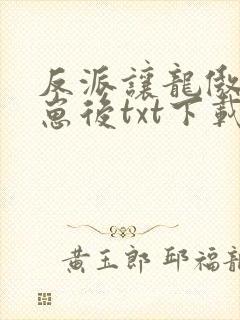 反派讓龍傲
崽後txt下載
黃玉郎 邱福龍